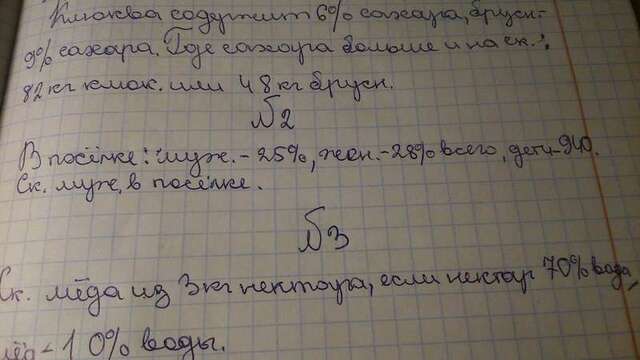 Клюква содержит 6% сахара, брусн-
9% сахара. Где сахара больше и на ск.:
82 кг клюк. или 48 кг брусн.
№2
В посёлке: муж. - 25%, жен. - 28% всего, дети - 940.
Ск. муж. в посёлке.
№3
Ск. мёда из 3 кг нектара, если нектар 70% вода,
мёд - 10% воды.